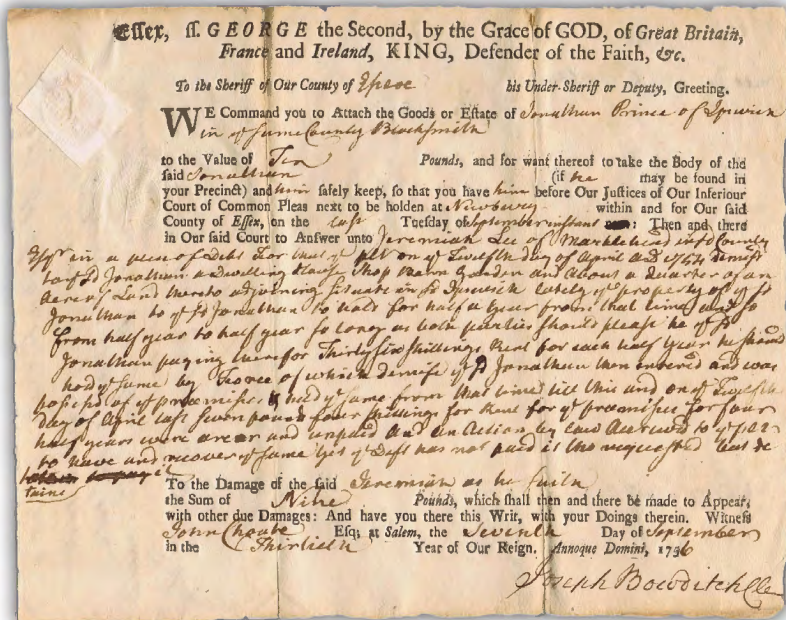 Essex, ss. GEORGE the Second, by the Grace of GOD, of Great Britain,
France and Ireland, KING, Defender of the Faith, &c.
To the Sheriff of Our County of Essex his Under-Sheriff or Deputy, Greeting.
WE Command you to Attach the Goods or Estate of Jonathan Prince of Ipswich
in ye same County Blacksmith
to the Value of Ten Pounds, and for want thereof to take the Body of the
said Jonathan (if he may be found in
your Precinct) and him safely keep, so that you have him before Our Justices of Our Inferiour
Court of Common Pleas next to be holden at Newbury within and for Our said
County of Essex, on the last Tuesday of September instant : Then and there
in Our said Court to Answer unto Jeremiah Lee of Marblehead in sd County
Esqr in a plea of Debt For that ye plt on ye Twelfth day of April AD 1754 demised
to ye sd Jonathan a dwelling House Shop Barn Garden and about a Quarter of an
Acre of Land thereto adjoining situate in sd Ipswich lately ye property of ye sd
Jonathan to ye sd Jonathan to hold for half a Year from that time and so
from half year to half year so long as both parties should please he ye sd
Jonathan paying therefor Thirty Six Shillings Rent for each half Year he should
hold ye same by Force of which demise ye sd Jonathan then entered and was
possessd of ye premises & held ye same from that time till this and on ye Twelfth
day of April last seven pounds four shillings for Rent for ye premises for four
half years were arear and unpaid and an Action by law accrued to ye plt
to have and recover ye same Yet ye Deft has not paid it tho requested but de
tains
To the Damage of the said Jeremiah as he saith
the Sum of Nine Pounds, which shall then and there be made to Appear,
with other due Damages: And have you there this Writ, with your Doings therein. Witness
John Choate Esq; at Salem, the Seventh Day of September
in the Thirtieth Year of Our Reign. Annoque Domini, 1756
Joseph Bowditch Cler